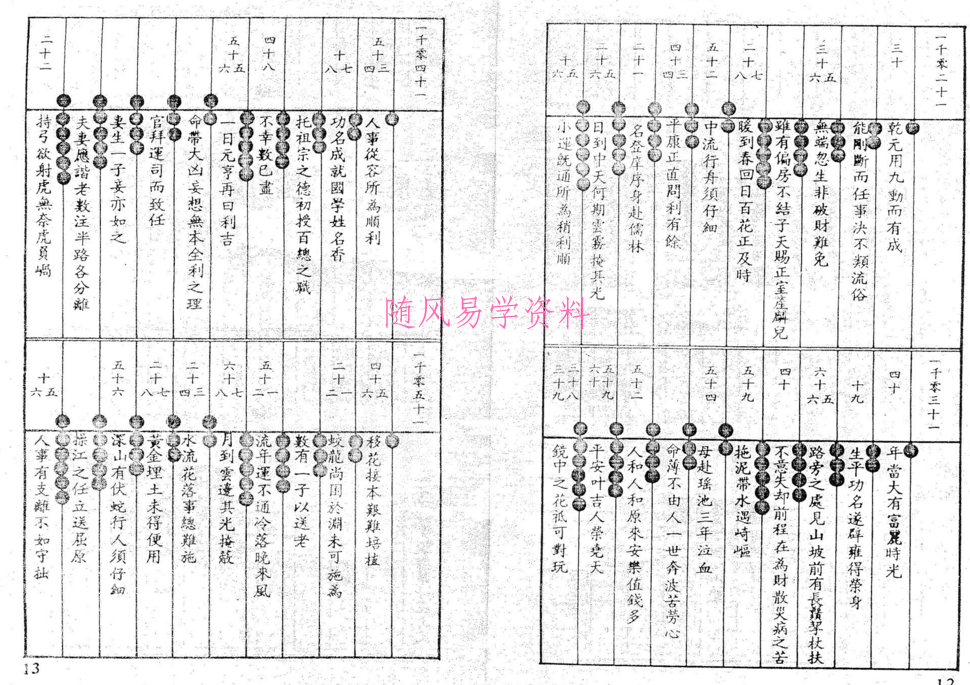 一千零二十一
三十
乾元用九動而有成
能剛斷而任事決不類流俗
三十五六
無端忽生非破財難免
雖有偏房不結子天賜正室產麟兒
二十七八
暖到春回日百花正及時
五十二
中流行舟須仔細
四十三四
平康正直問利有餘
二十一
名登庠序身赴儒林
二十五六
日到中天何期雲霧掩其光
十五六
小運既通所為稍利順
一千零三十一
四十
年當大有富麗時光
十九
生平功名遂辟雍得榮身
六十五六
路旁之處見山坡前有長鬚拏杖扶
四十
不意失却前程在為財散災病之苦
五十九
拖泥帶水遇崎嶇
五十四
母赴瑤池三年泣血
命薄不由人一世奔波苦勞心
五十二
人和人和原來安樂值錢多
五十九六十
平安叶吉人榮堯天
三十八三十九
鏡中之花祗可對玩
12
一千零四十一
五十三四
人事從容所為順利
十七八
功名成就國學姓名香
托祖宗之德初授百總之職
四十八
不幸數已盡
五十五六
一日元亨再曰利吉
命帶大凶妄想無本全利之理
官拜運司而致任
妻生一子妾亦如之
夫妻應諧老數注半路各分離
二十二
持弓欲射虎無奈虎負嵎
一千零五十一
四十五六
移花接本艱難培植
二十一二
蛟龍尚困於淵未可施為
數有一子以送老
五十一二
流年運不通冷落晚來風
六十七八
月到雲邊其光掩蔽
二十三四
水流花落事總難施
二十七八
黃金埋土未得便用
五十六
深山有伏蛇行人須仔細
操江之任立送屈原
十五六
人事有支離不如守拙
13
随风易学资料